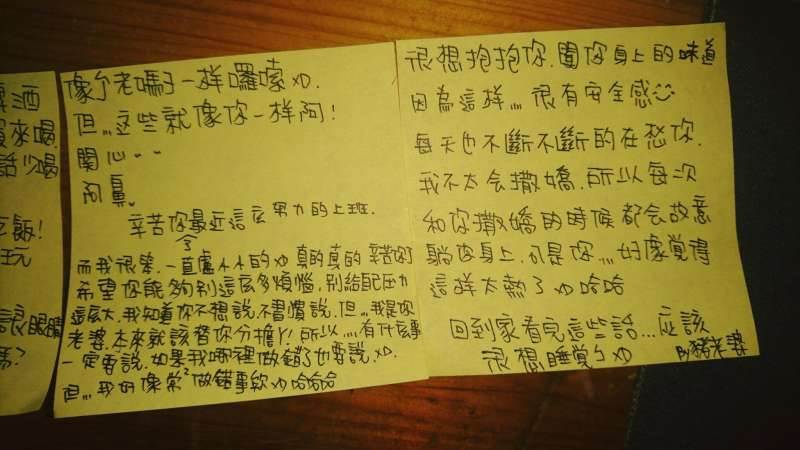 酒
來喝
話少喝
飯!
玩
眼睛
嗎?
像个老媽子一样囉嗦XD.
但,,,这些就像你一样阿!
関心~~
阿鼻。
辛苦你最近這広努力的上班.
而我很笨.一直盧小小的XD真的真的辛苦你了
希望你能夠別這広多煩惱,別給自己压力
這広大.我知道你不想說.不習慣說.但,,,我是你
老婆.本來就該替你分擔丫!所以,,,,有什広事
一定要說.如果我哪裡做錯了也要說.XD.
但,,,我好像常2做錯事欸XD哈哈哈
很想抱抱你.聞你身上的味道
因為這样,,,,很有安全感
每天也不斷不斷的在想你.
我不太会撒嬌.所以每次
和你撒嬌的時候都会故意
躺你身上.可是你,,,,好像覺得
這样太熱了XD哈哈
回到家看完這些話...应該
很想睡覚ㄅXD
By豬老婆